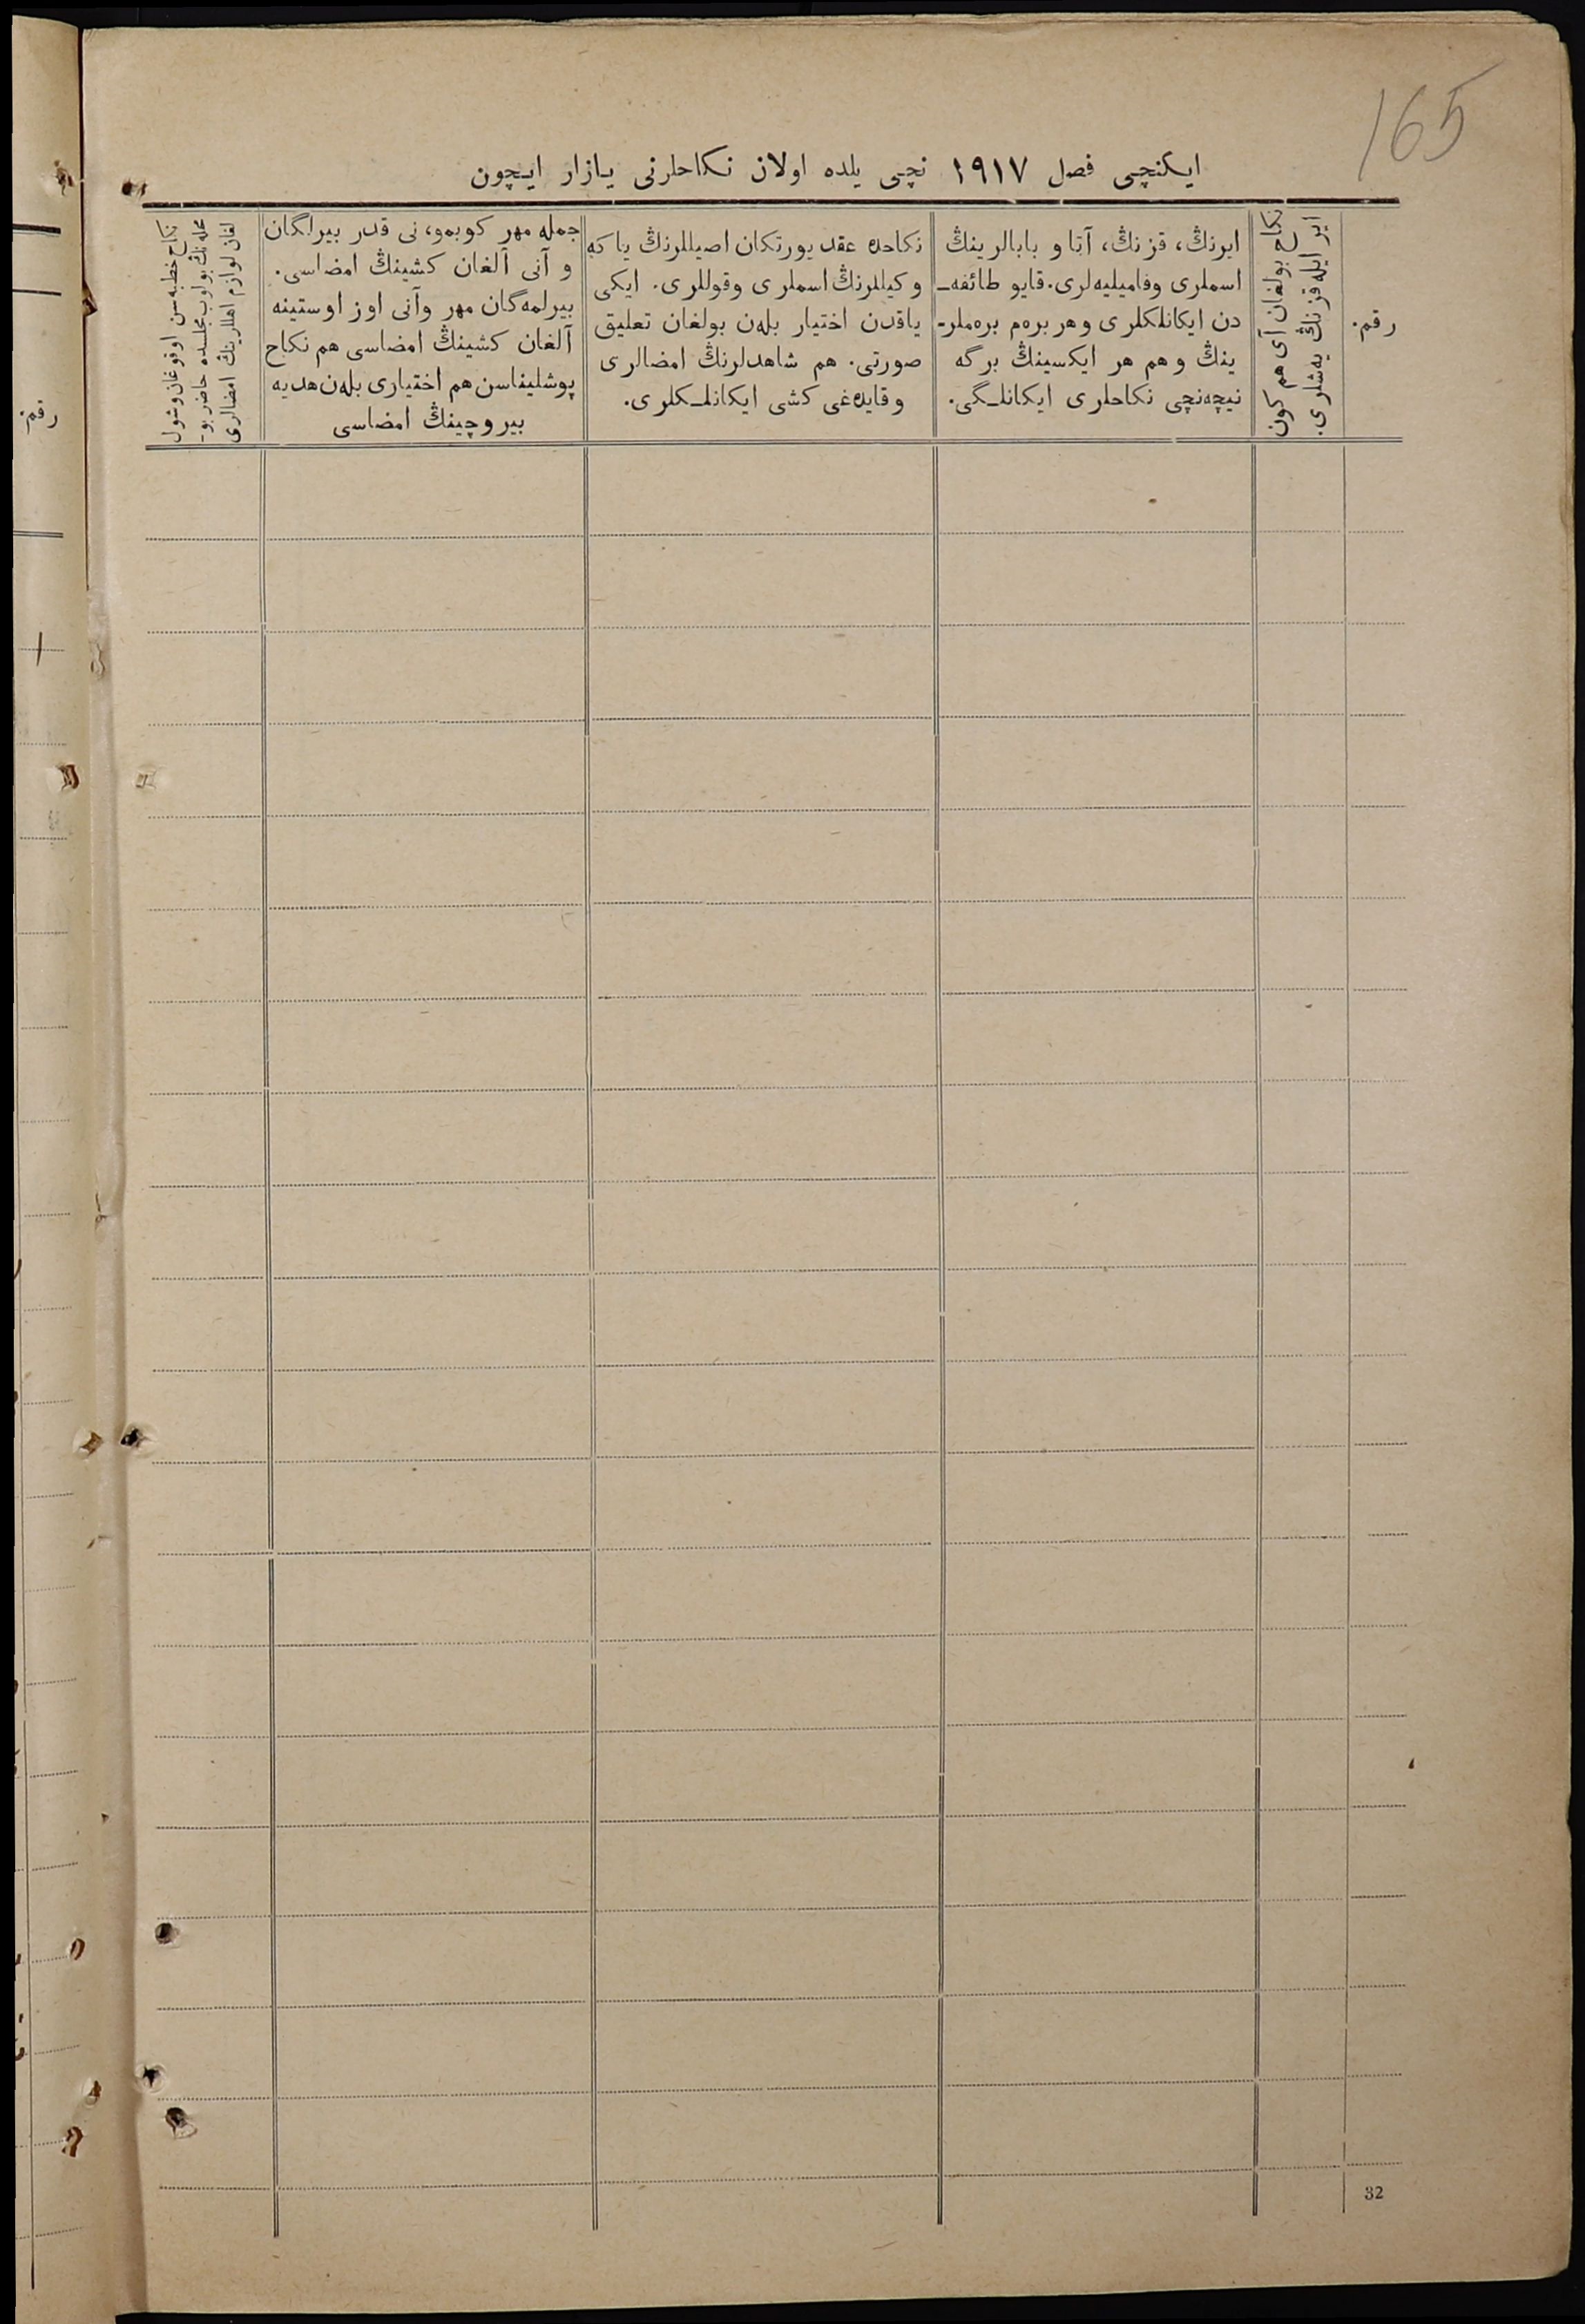 165
ایکنچی فصل ١٩١٧ نچی یلده اولان نکاحلرنی یازار ایچون
رقم.
نکاح بولغان آی هم کون
ایر ایله قزنڭ یه‌شلری.
ایرنڭ، قزنڭ، آتا و بابالرینڭ
اسملری وفامیلیه‌لری. قایو طائفه‌ـ
دن ایکانلکلری وهر بره‌م بره‌ملرـ
ینڭ وهم هر ایکسینڭ برگه
نیچه‌نچی نکاحلری ایکانلـگی.
نکاحده عقد یورتکان اصیللرنڭ یاکه
وکیللرنڭ اسملری وقوللری. ایکی
یاقدن اختیار بله‌ن بولغان تعلیق
صورتی. هم شاهدلرنڭ امضالری
وقایده‌غی کشی ایکانلـکلری.
جمله مهر کوبمو، نی قدر بیرلگان
و آنی آلغان کشینڭ امضاسی.
بیرلمه‌گان مهر وآنی اوز اوستینه
آلغان کشینڭ امضاسی هم نکاح
پوشلیناسن هم اختیاری بله‌ن هدیه
بیروچینڭ امضاسی
نکاح خطبه‌سن اوقوغان وشول
محله‌نڭ بولوب مجلسده حاضر بوـ
لغان لوازم اهللرینڭ امضالری
رقم.
32